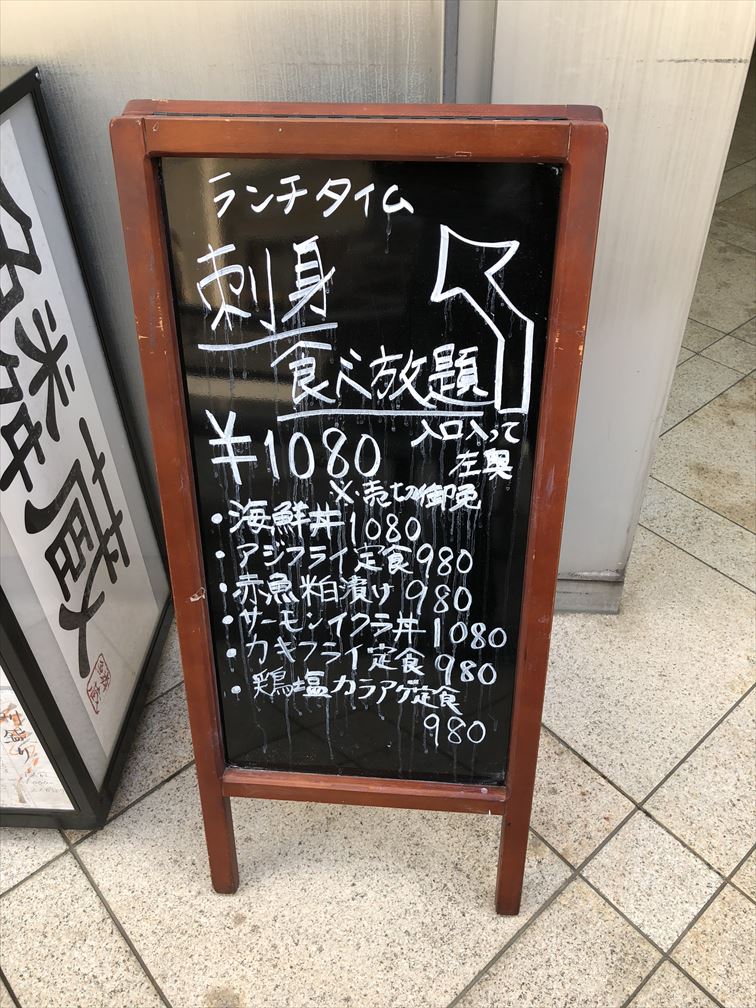 ランチタイム
刺身
食べ放題
¥1080
入口入って
左奥
※売切御免
・海鮮丼1080
・アジフライ定食980
・赤魚粕漬け980
・サーモンイクラ丼1080
・カキフライ定食980
・鶏塩カラアゲ定食
980
米蔵